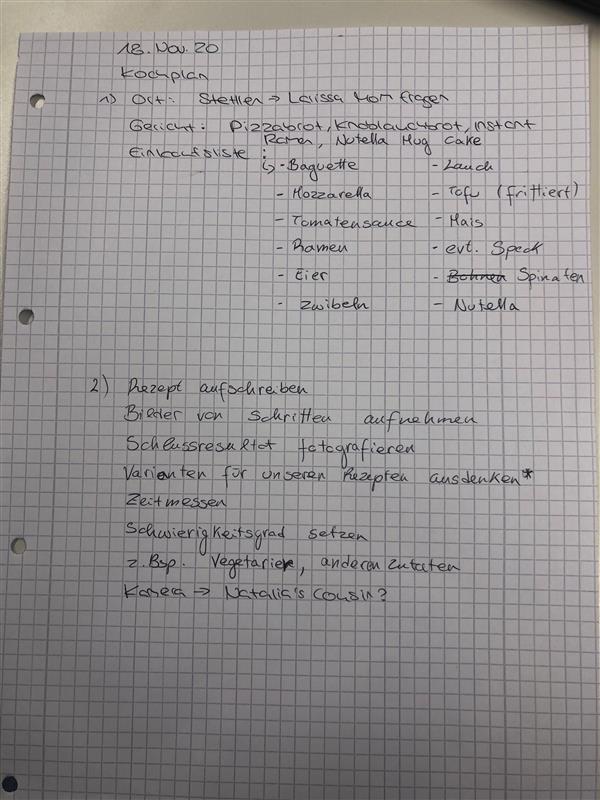 18. Nov. 20
Kochplan
1) Ort: Stettlen → Larissa Mom fragen
Gericht: Pizzabrot, Knoblauchbrot, Instant
Ramen, Nutella Mug Cake
Einkaufsliste :
↳ - Baguette - Lauch
- Mozzarella - Tofu (frittiert)
- Tomatensauce - Mais
- Ramen - evt. Speck
- Eier - Bohnen Spinaten
- Zwibeln - Nutella
2) Rezept aufschreiben
Bilder von Schritten aufnehmen
Schlussresultat fotografieren
Varianten für unseren Rezepten ausdenken*
Zeitmessen
Schwierigkeitsgrad setzen
z.Bsp. Vegetarier, anderen Zutaten
Kamera → Natalia's Cousin?